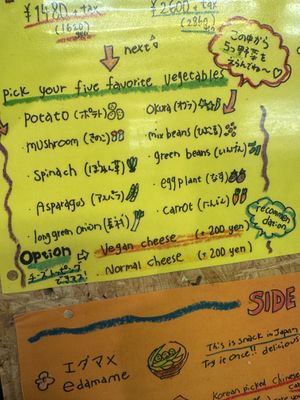 ¥1480 + tax
(1620)
¥2600 + tax
(2860)
next
この中から
5つ野菜を
えらんでね〜♡
pick your five favorite vegetables
・potato (ポテト)
・mushroom (きのこ)
・spinach (ほうれん草)
・Asparagus (アスパラ)
・long green onion (長ネギ)
・Okura (オクラ)
・mix beans (ひよこ豆)
・green beans (いんげん)
・egg plant (なす)
・carrot (にんじん)
recommendation
Option ⇨ Vegan cheese (+200 yen)
Normal cheese (+200 yen)
チーズトッピング
できます!
SIDE
エダマメ
edamame
This is snack in Japan
Try it once!! delicious
Korean picked Chinese